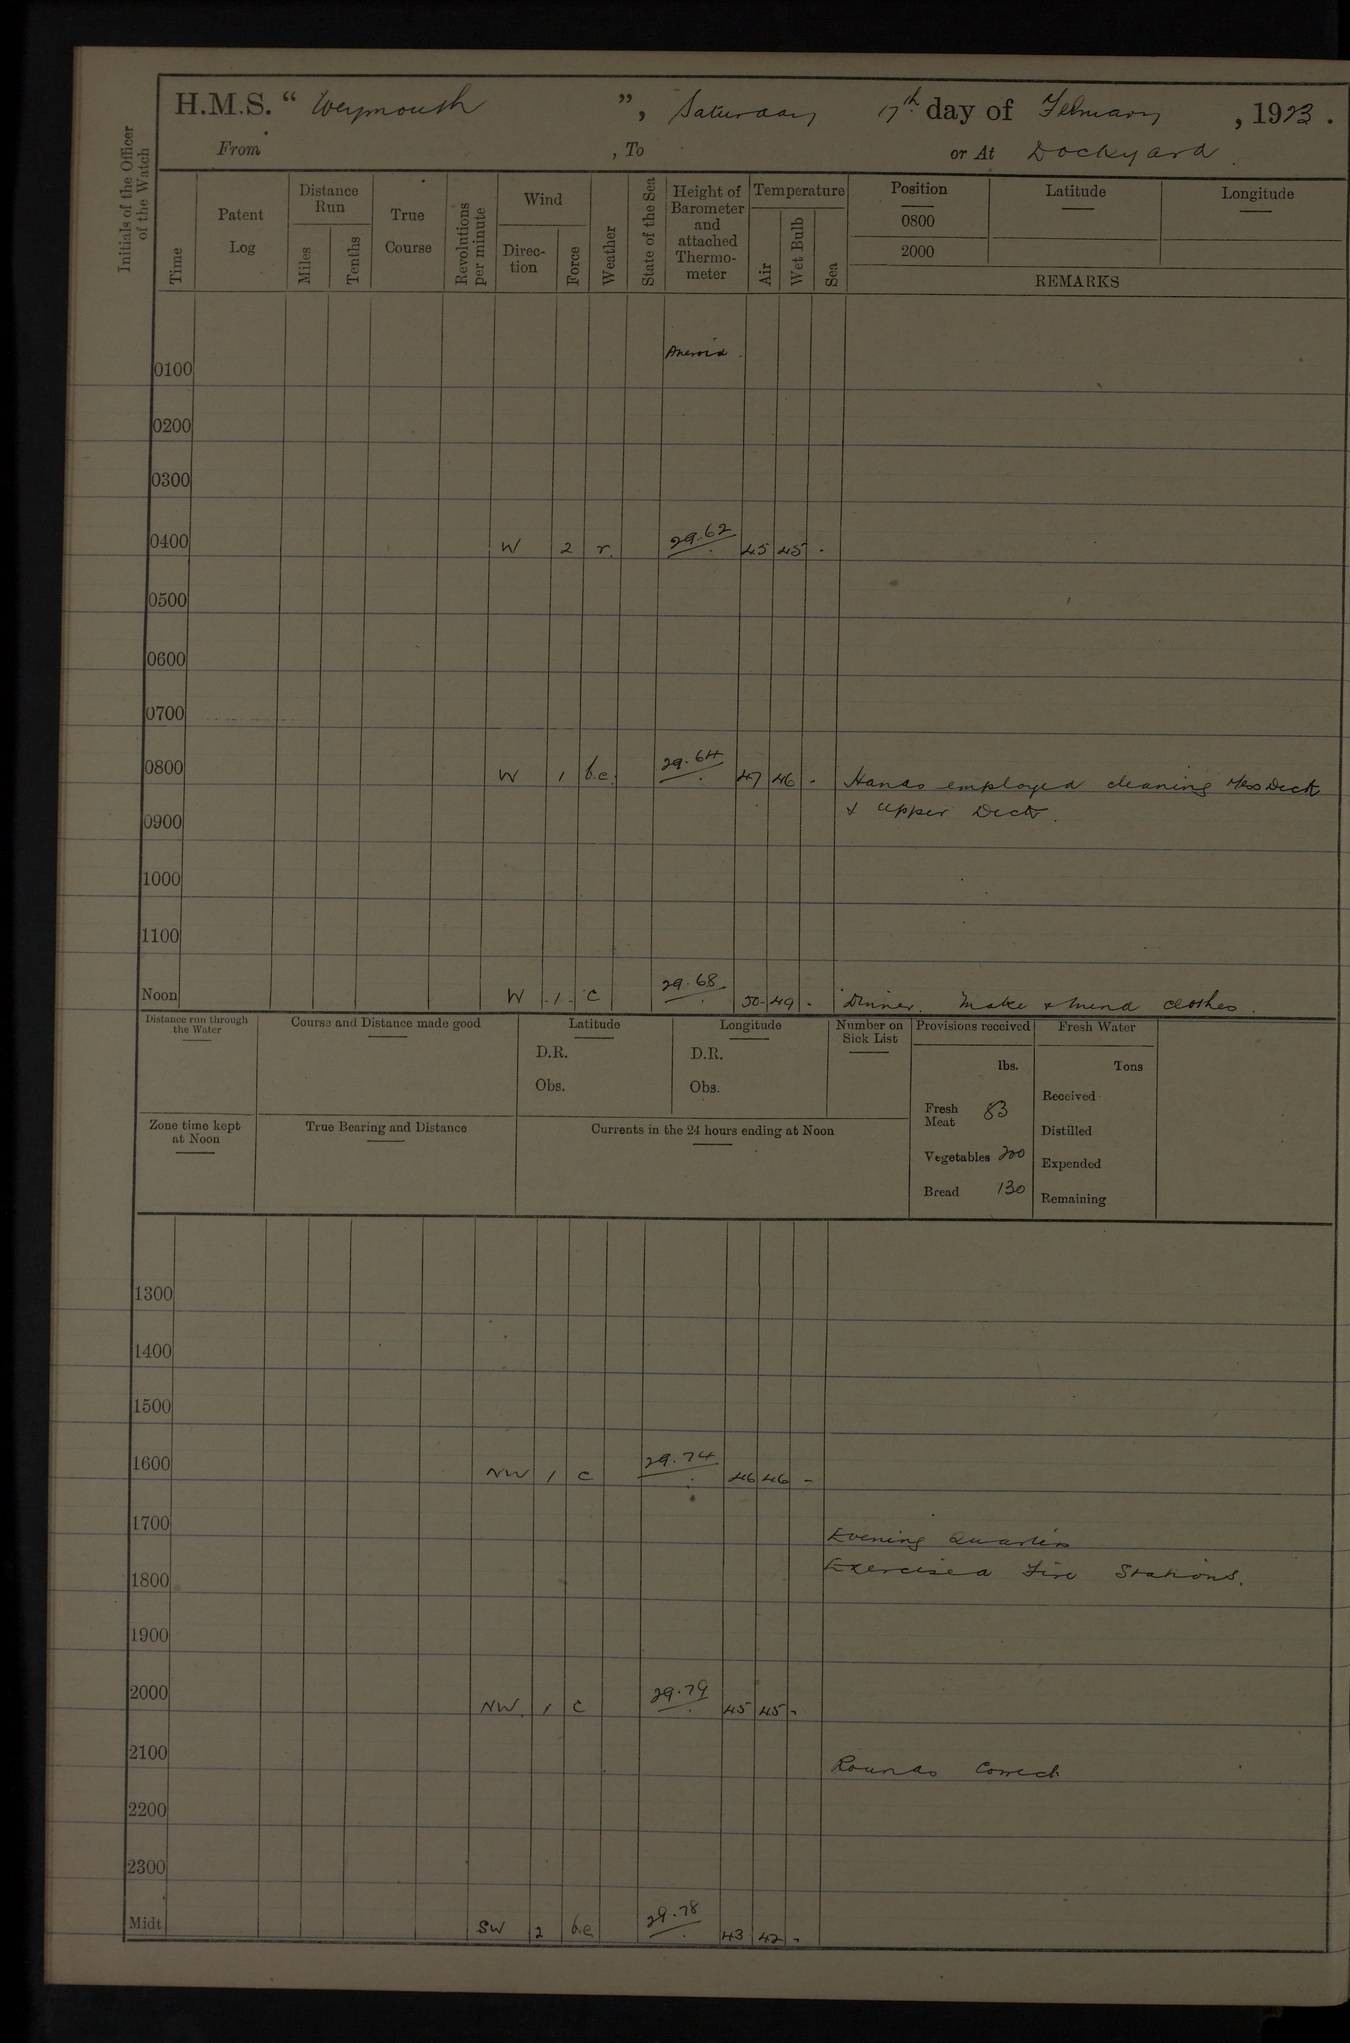 H.M.S. “ Weymouth ”, Saturday 17th day of February , 1923 .
From , To or At Dockyard .
Initials of the Officer of the Watch
Time
Patent Log
Distance Run
Miles
Tenths
True Course
Revolutions per minute
Wind
Direc-tion
Force
Weather
State of the Sea
Height of Barometer and attached Thermo-meter
Temperature
Air
Wet Bulb
Sea
Position Latitude Longitude
0800
2000
REMARKS
Aneroid .
0100
0200
0300
0400 W 2 r. 29.62 45 45 -
0500
0600
0700
0800 W 1 b.c. 29.64 47 46 - Hands employed cleaning Mess Deck
& Upper Deck .
0900
1000
1100
Noon W 1 c 29.68 50 49 - Dinner. Make & Mend clothes .
Distance run through the Water
Course and Distance made good
Latitude
D.R.
Obs.
Longitude
D.R.
Obs.
Number on Sick List
Provisions received
lbs.
Fresh Meat 83
Vegetables 200
Bread 130
Fresh Water
Tons
Received
Distilled
Expended
Remaining
Zone time kept at Noon
True Bearing and Distance
Currents in the 24 hours ending at Noon
1300
1400
1500
1600 NW 1 c 29.74 46 46 -
1700
Evening Quarters
Exercised Fire Stations.
1800
1900
2000 NW. 1 c 29.79 45 45 -
2100
Rounds Correct
2200
2300
Midt. SW 2 b.c. 29.78 43 42 -